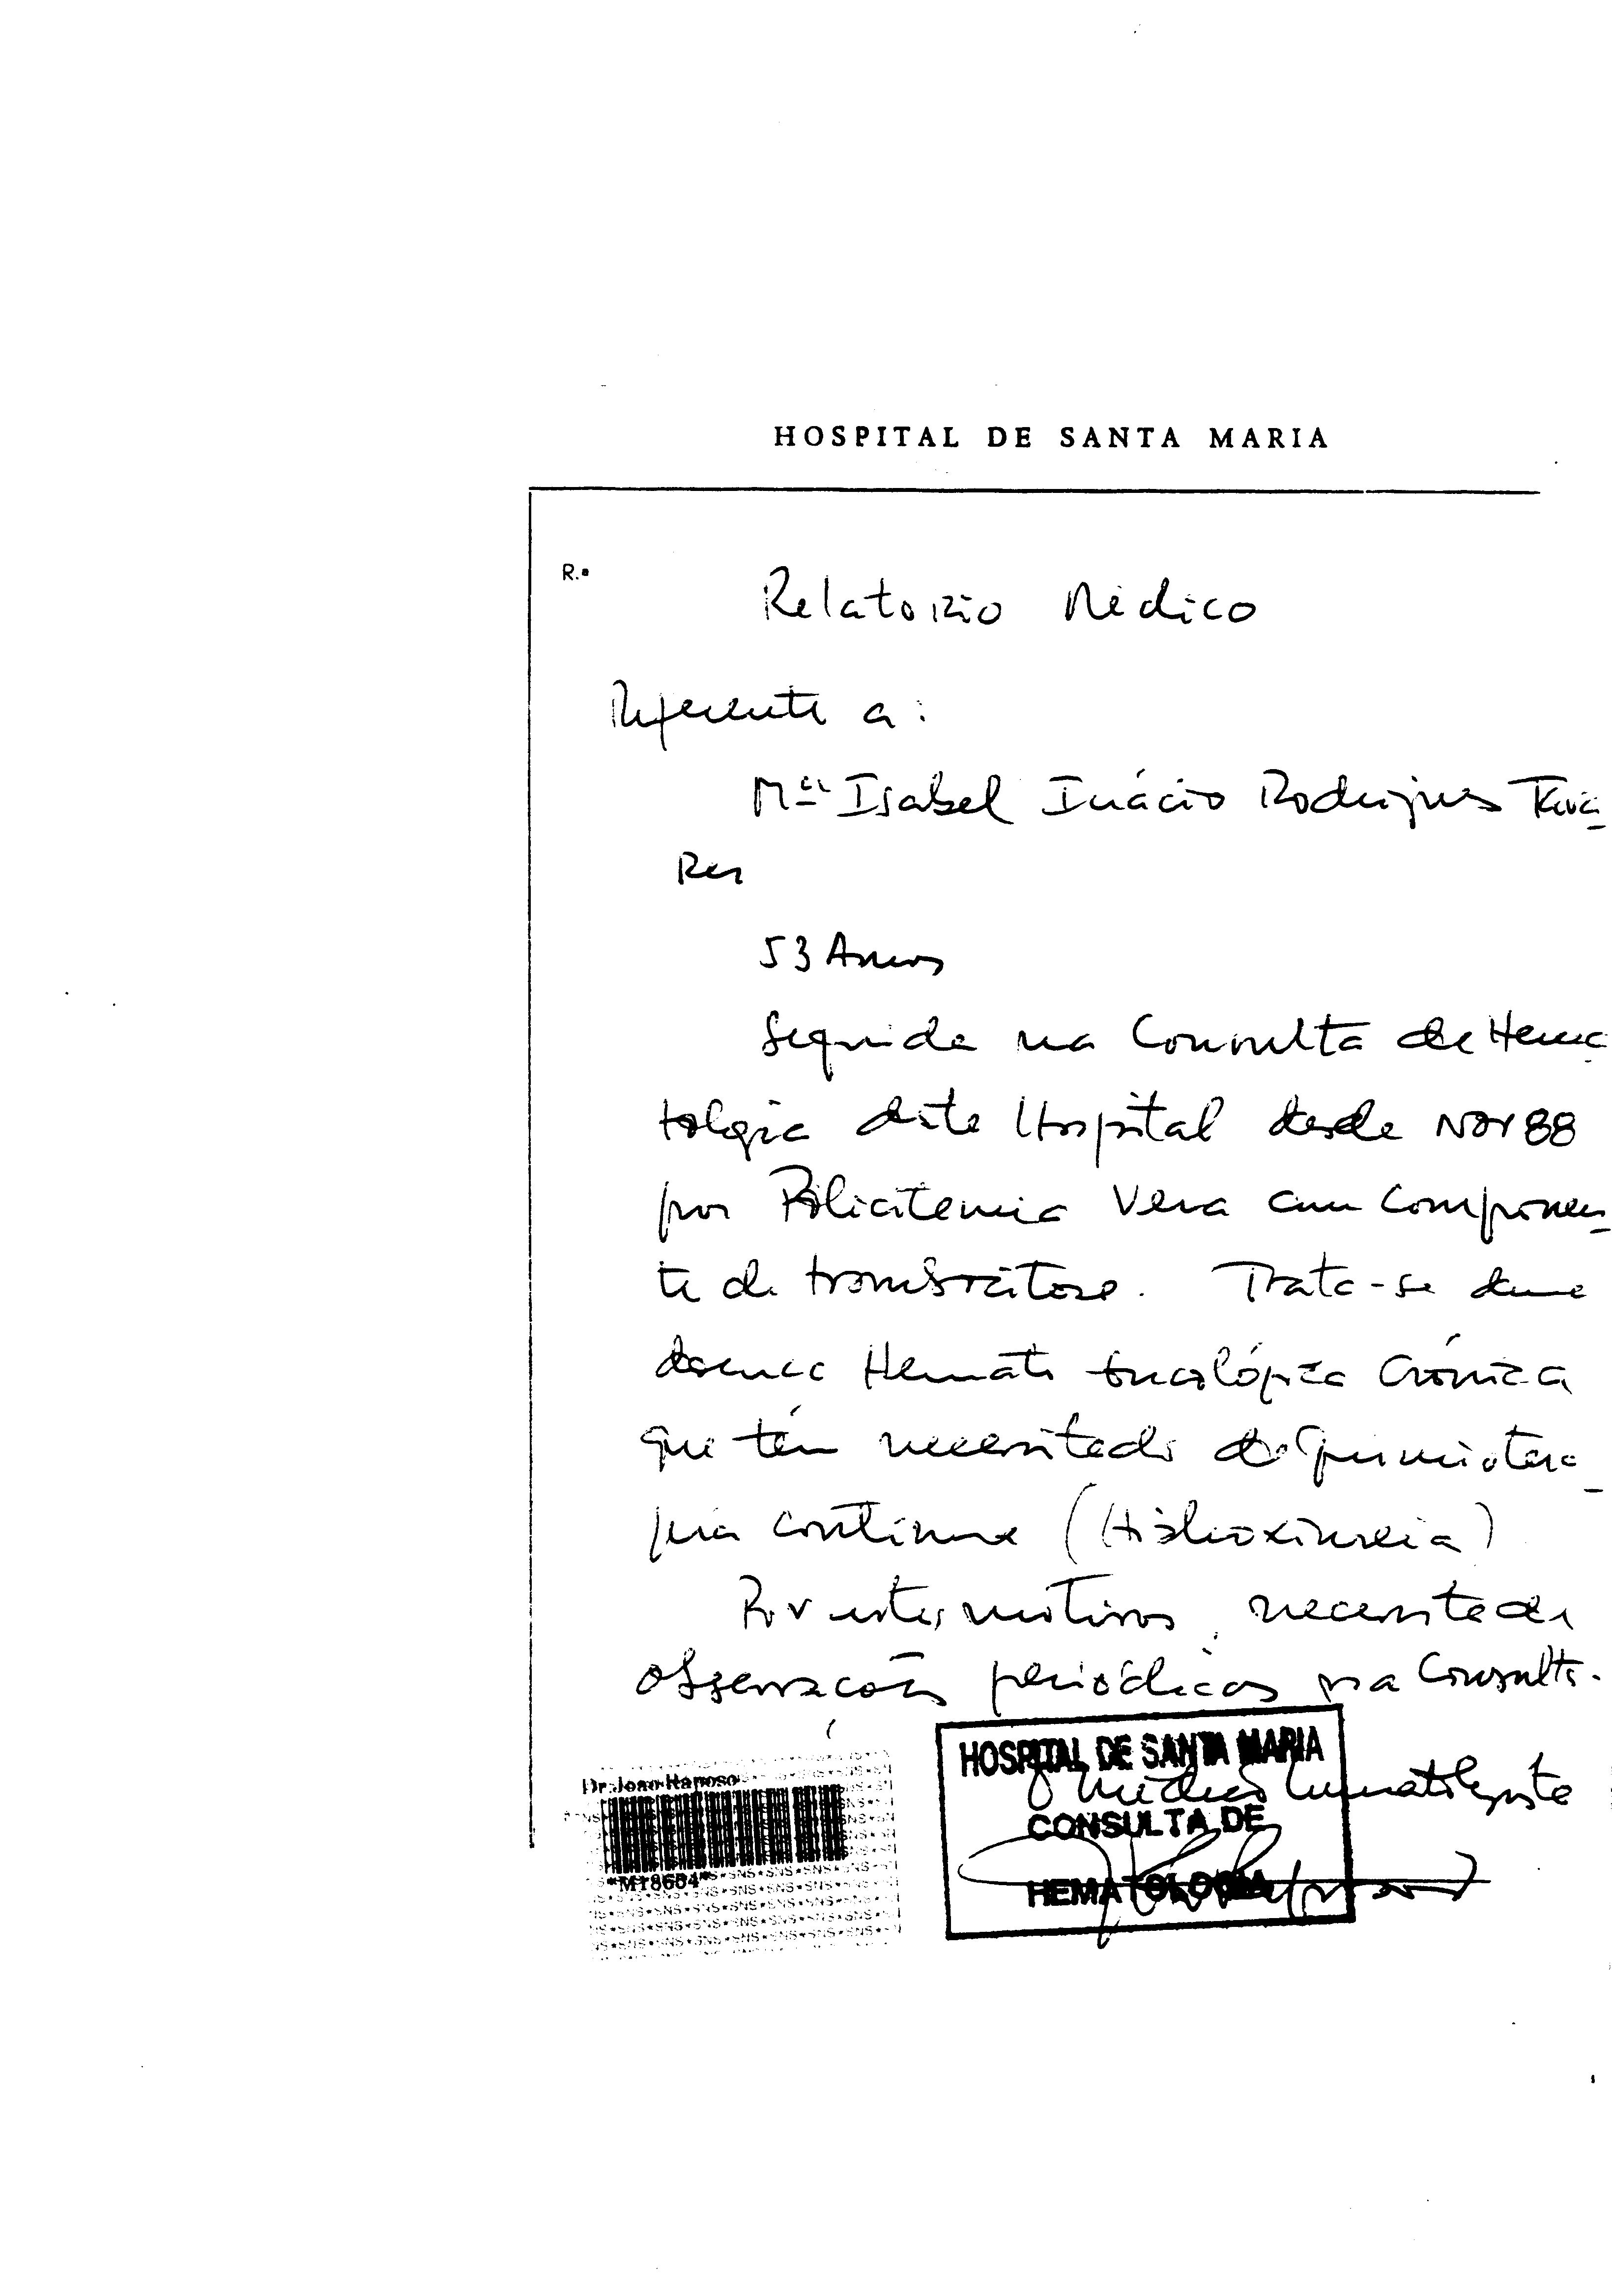 HOSPITAL DE SANTA MARIA
R.e
Relatorio Médico
Referente a:
Mª Isabel Inácio Rodrigues Tava-
Res
53 Anos
Seguida na Consulta de Hema-
tologia deste Hospital desde Nov 88
por Policitemia Vera com componen-
te de trombocitose. Trata-se duma
doença Hemato Oncológica Crónica
que tém necessitado de Quimiotera-
pia continua (Hidroxiureia)
Por estes motivos, necessita de
observações periódicas na Consulta.
Dr. Joao Raposo
*M18604*
HOSPITAL DE SANTA MARIA
O Médico hematologista
CONSULTA DE
HEMATOLOGIA